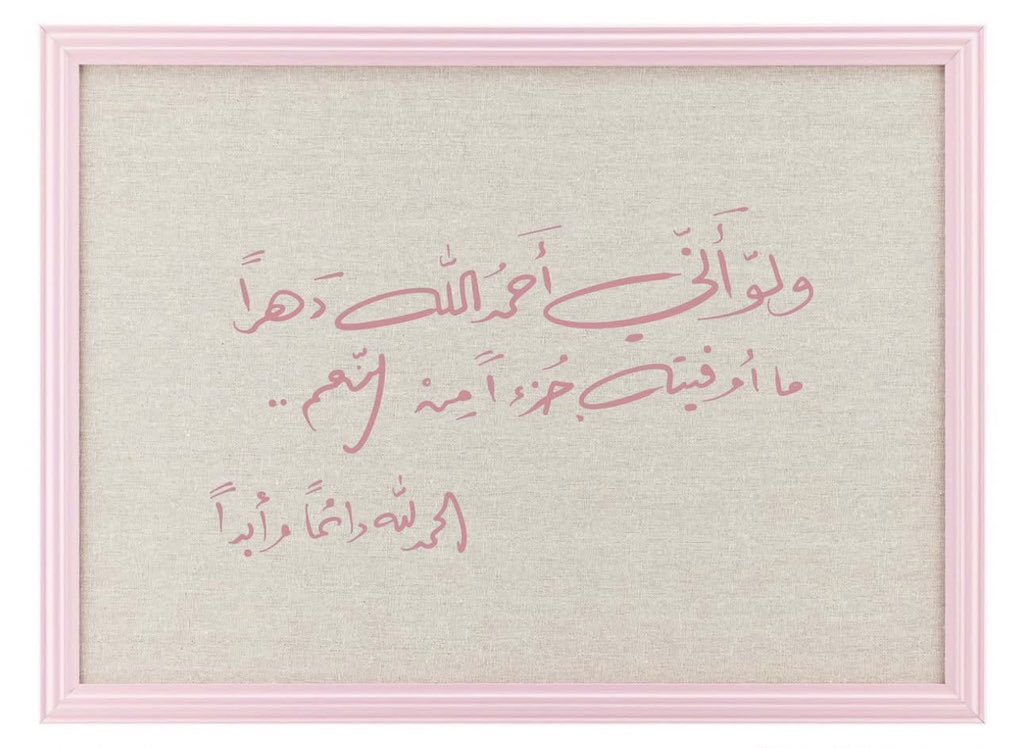 ولوّ أَنّي أَحمُد اللّٰه دَهراً
ما أوفيته جُزءاً مِنْ النّعم ..
الحمدلله دائماً وأبداً